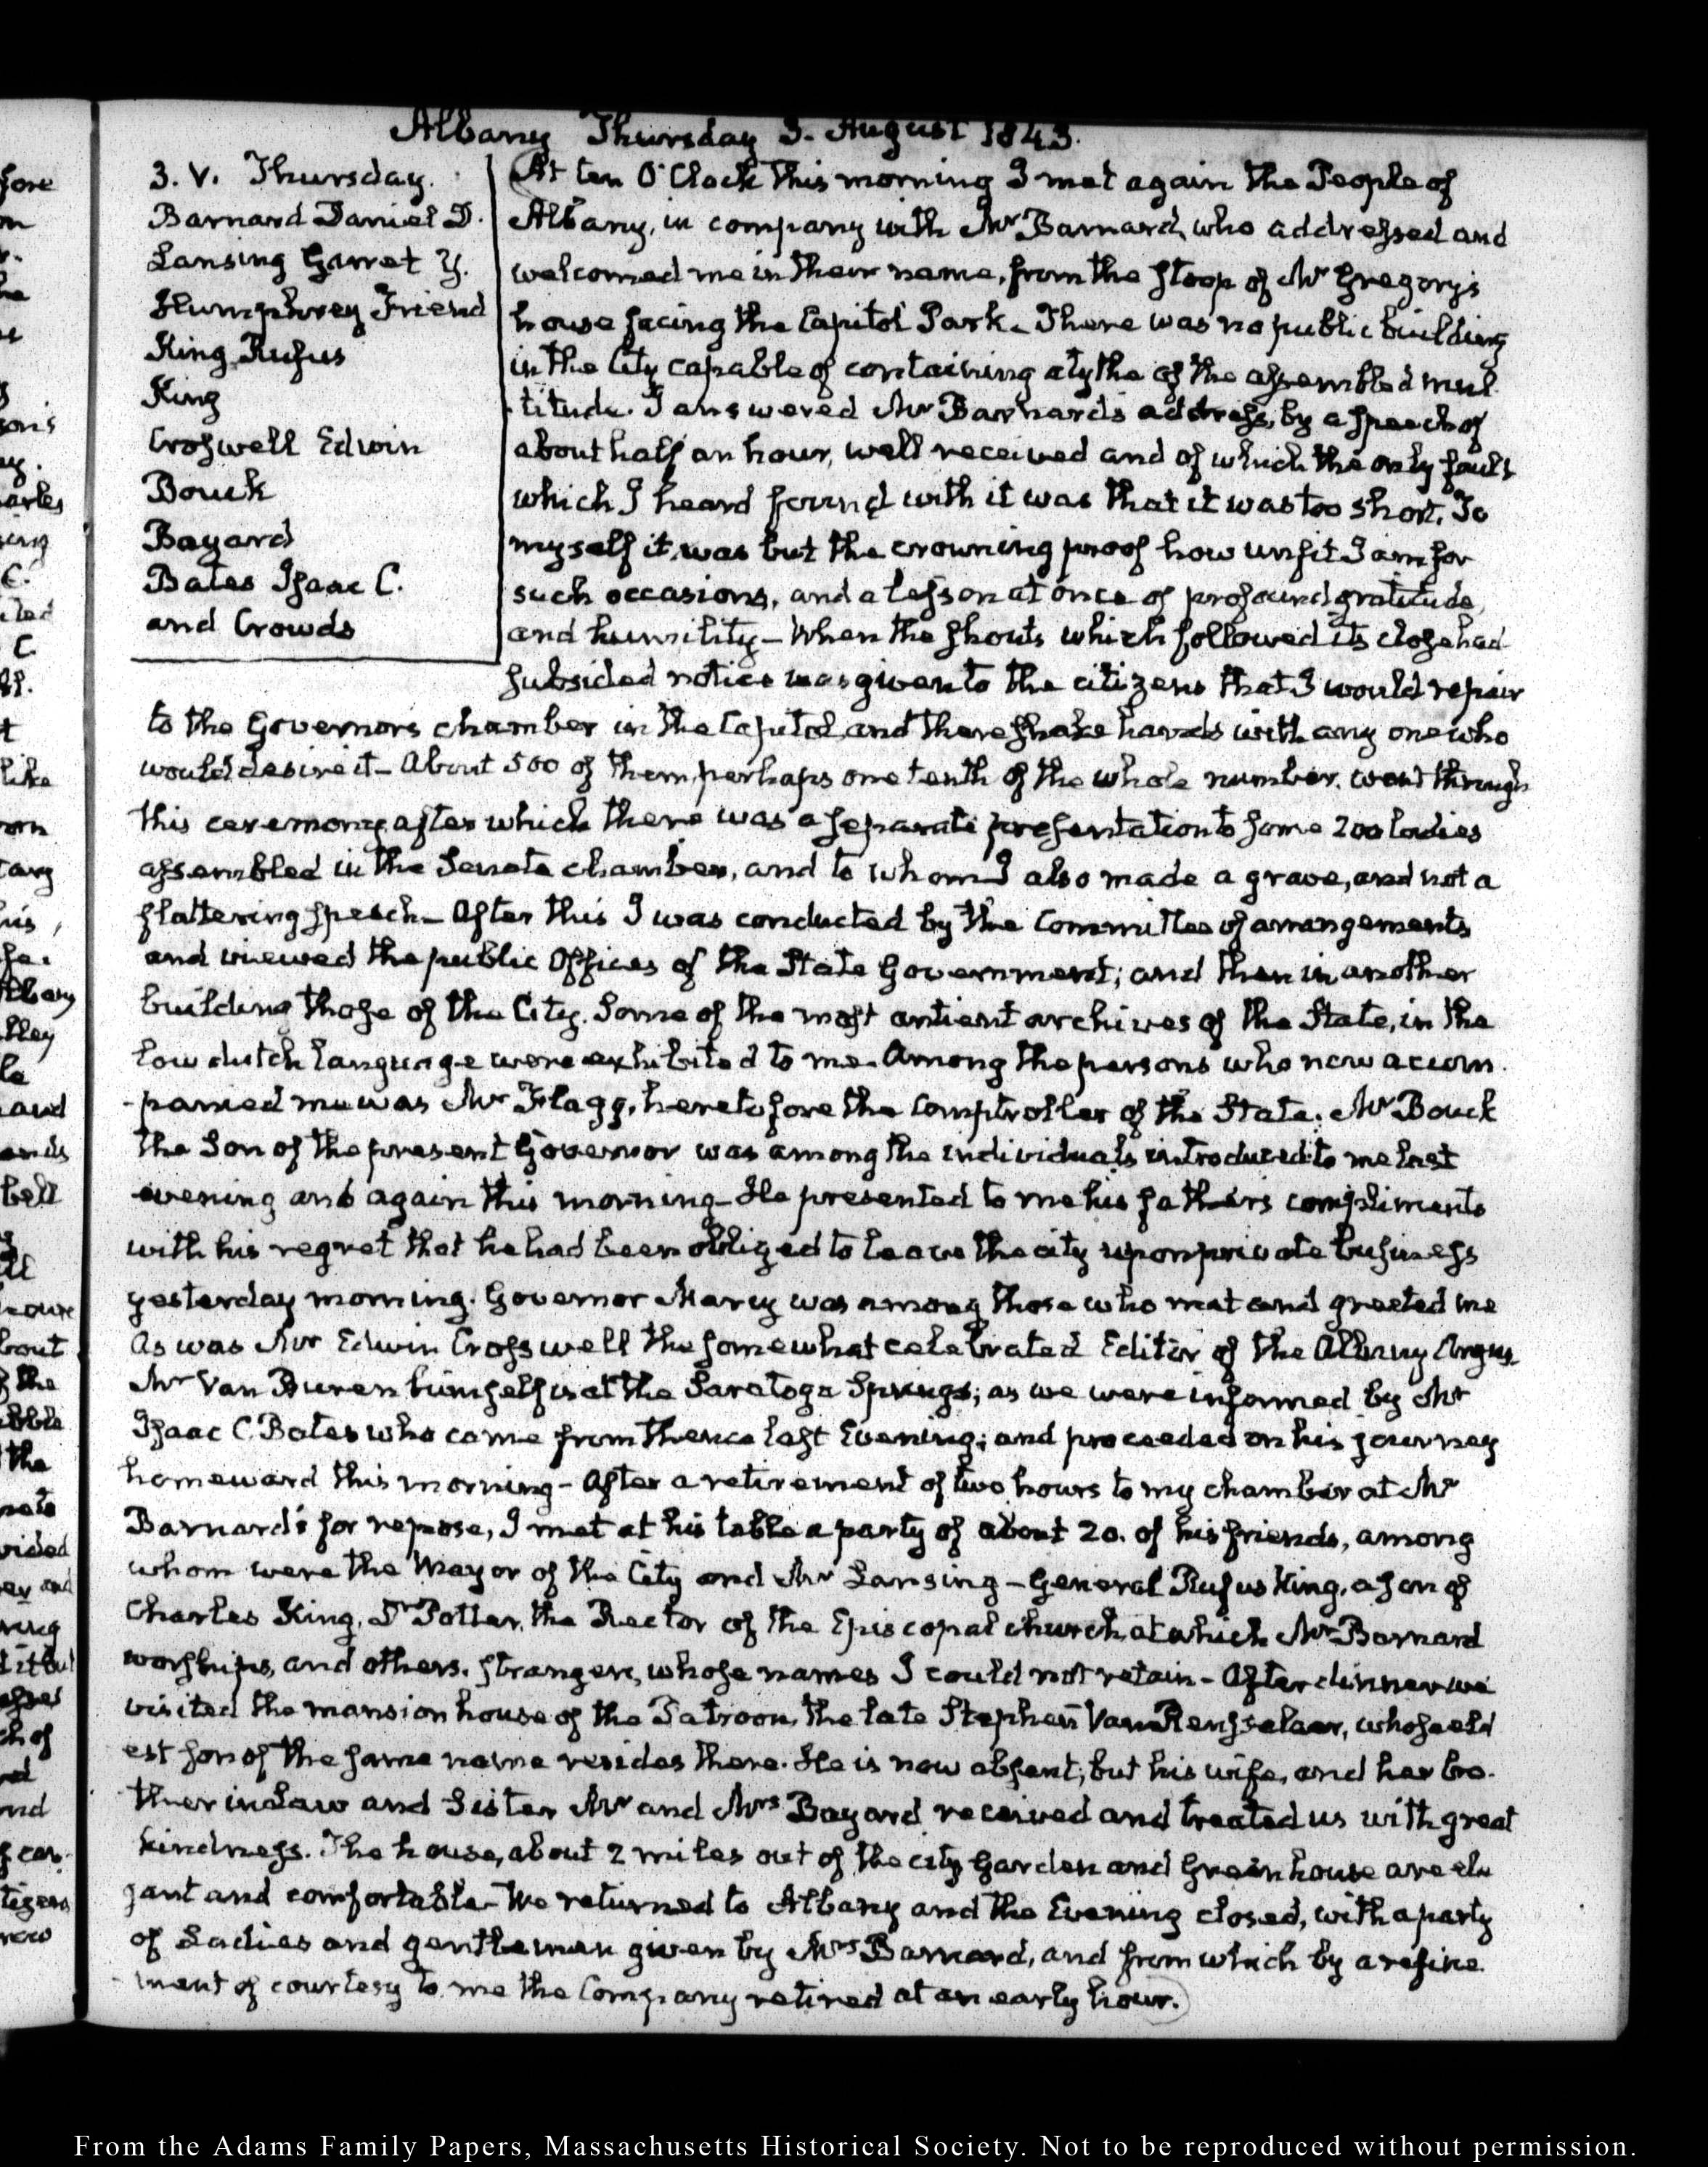 Albany Thursday 3. August 1843.
3. V. Thursday.
Barnard Daniel D.
Lansing Garret Y.
Humphrey Friend
King Rufus
King
Croswell Edwin
Bouck
Bayard
Bates Isaac C.
and Crowds
At ten O'Clock this morning I met again the People of
Albany, in company with Mr Barnard, who addressed and
welcomed me in their name, from the stoop of Mr Gregory's
house facing the Capitol Park. There was no public building
in the City capable of containing a tythe of the assembled mul-
titude. I answered Mr Barnard's address, by a speech of
about half an hour, well received and of which the only fault
which I heard found with it was that it was too short. To
myself it was but the crowning proof how unfit I am for
such occasions, and a lesson at once of profound gratitude,
and humility— When the shouts which followed its close had
subsided notice was given to the citizens that I would repair
to the Governors chamber in the Capitol, and there shake hands with any one who
would desire it— About 500 of them, perhaps one tenth of the whole number, went through
this ceremony, after which there was a separate presentation to some 200 ladies
assembled in the Senate chamber, and to whom I also made a grave, and not a
flattering speech— After this I was conducted by the Committee of arrangements
and viewed the public Offices of the State Government; and then in another
building those of the City. Some of the most antient archives of the State, in the
low dutch language were exhibited to me. Among the persons who now accom-
-panied me was Mr Flagg, heretofore the Comptroller of the State; Mr Bouck
the Son of the present Governor was among the individuals introduced to me last
evening and again this morning— He presented to me his father's compliments
with his regret that he had been obliged to leave the city upon private business
yesterday morning. Governor Marcy was among those who met and greeted me
As was Mr Edwin Crosswell the somewhat celebrated Editor of the Albany Argus.
Mr Van Buren himself is at the Saratoga Springs; as we were informed by Mr
Isaac C Bates who came from thence last Evening; and proceeded on his journey
homeward this morning— After a retirement of two hours to my chamber at Mr
Barnard's for repose, I met at his table a party of about 20. of his friends, among
whom were the Mayor of the City and Mr Lansing— General Rufus King, a son of
Charles King, Dr Potter, the Rector of the Episcopal church, at which Mr Barnard
worships, and others, strangers, whose names I could not retain— After dinner we
visited the mansion house of the Patroon, the late Stephen Van Rensselaer, whose eld
est son of the same name resides there. He is now absent; but his wife, and her bro-
ther in law and Sister Mr and Mrs Bayard received and treated us with great
kindness. The house, about 2 miles out of the city Garden and Green house are ele
gant and comfortable— We returned to Albany and the Evening closed, with a party
of Ladies and gentlemen given by Mrs Barnard, and from which by a refine
-ment of courtesy to me the Company retired at an early hour.
From the Adams Family Papers, Massachusetts Historical Society. Not to be reproduced without permission.